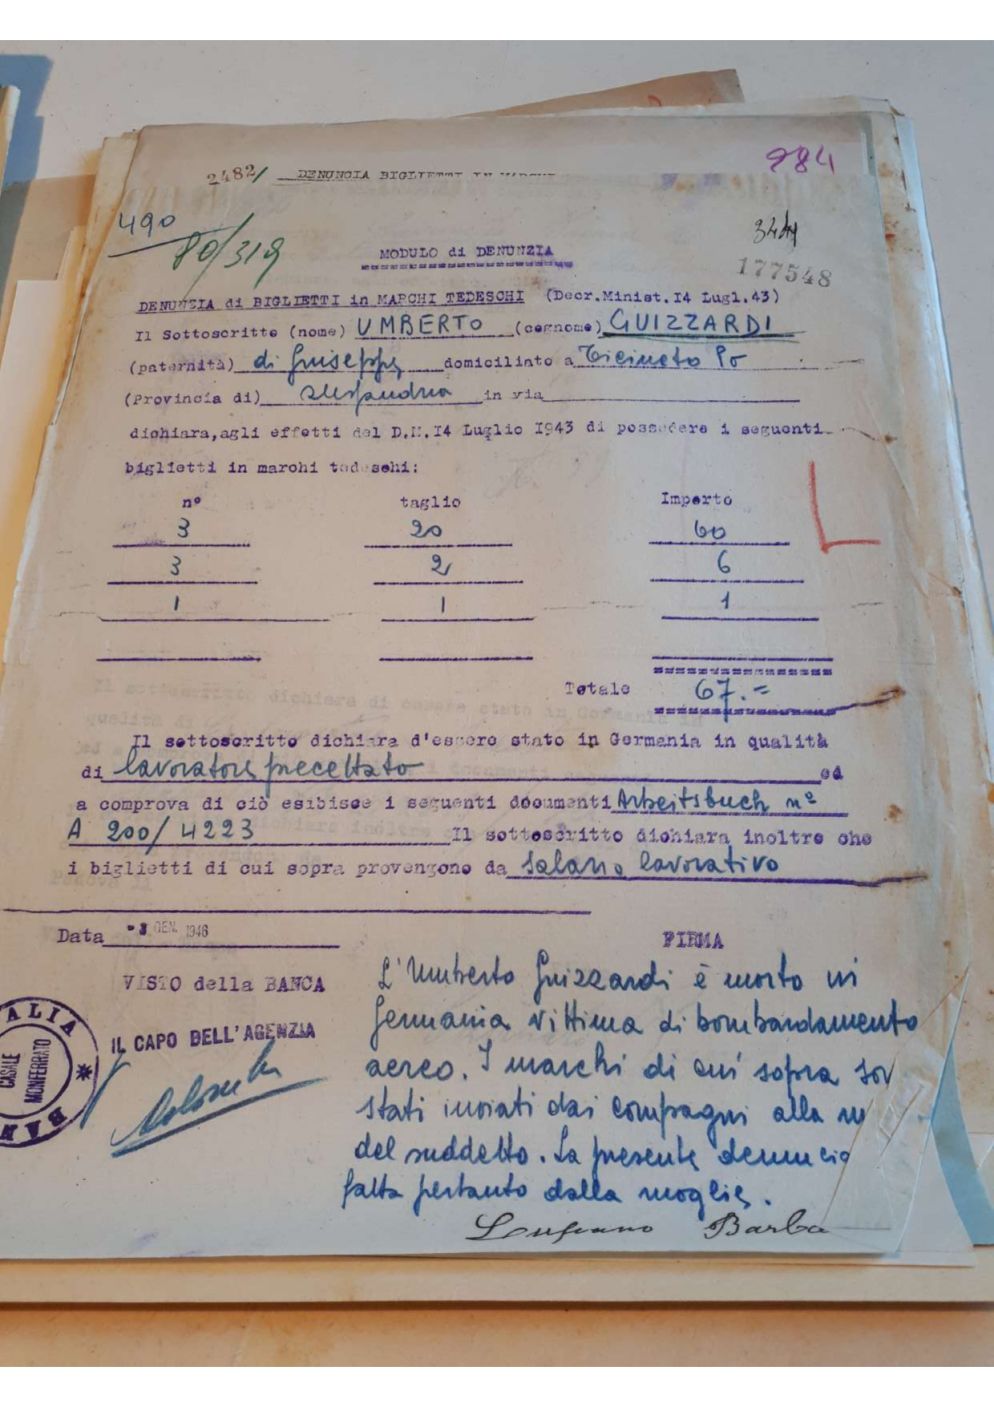 2482/ DENUNCIA BIGLIETTI IN MARCHI
984
490
80/319
3444
177548
MODULO di DENUNZIA
DENUNZIA di BIGLIETTI in MARCHI TEDESCHI (Decr.Minist.I4 Lugl.43)
Il Sottoscritto (nome) UMBERTO (cognome) GUIZZARDI
(paternità) di Giuseppe domiciliato a Ticineto Po
(Provincia di) Alessandria in via
dichiara,agli effetti del D.M.I4 Luglio I943 di possedere i seguenti
biglietti in marchi tedeschi:
n° taglio Importo
3 20 60
3 2 6
1 1 1
Totale 67.=
Il sottoscritto dichiara d'essere stato in Germania in qualità
di lavoratore precettato ed
a comprova di ciò esibisce i seguenti documenti Arbeitsbuch n°
A 200/4223 Il sottoscritto dichiara inoltre che
i biglietti di cui sopra provengono da salario lavorativo
Data -3 GEN. 1946
FIRMA
VISTO della BANCA
IL CAPO DELL'AGENZIA
ALIA
CASALE
MONFERRATO
BAN
L'Umberto Guizzardi è morto in
Germania vittima di bombardamento
aereo. I marchi di cui sopra son
stati inviati dai compagni alla m
del suddetto. La presente denuncia
fatta pertanto dalla moglie.
Barba